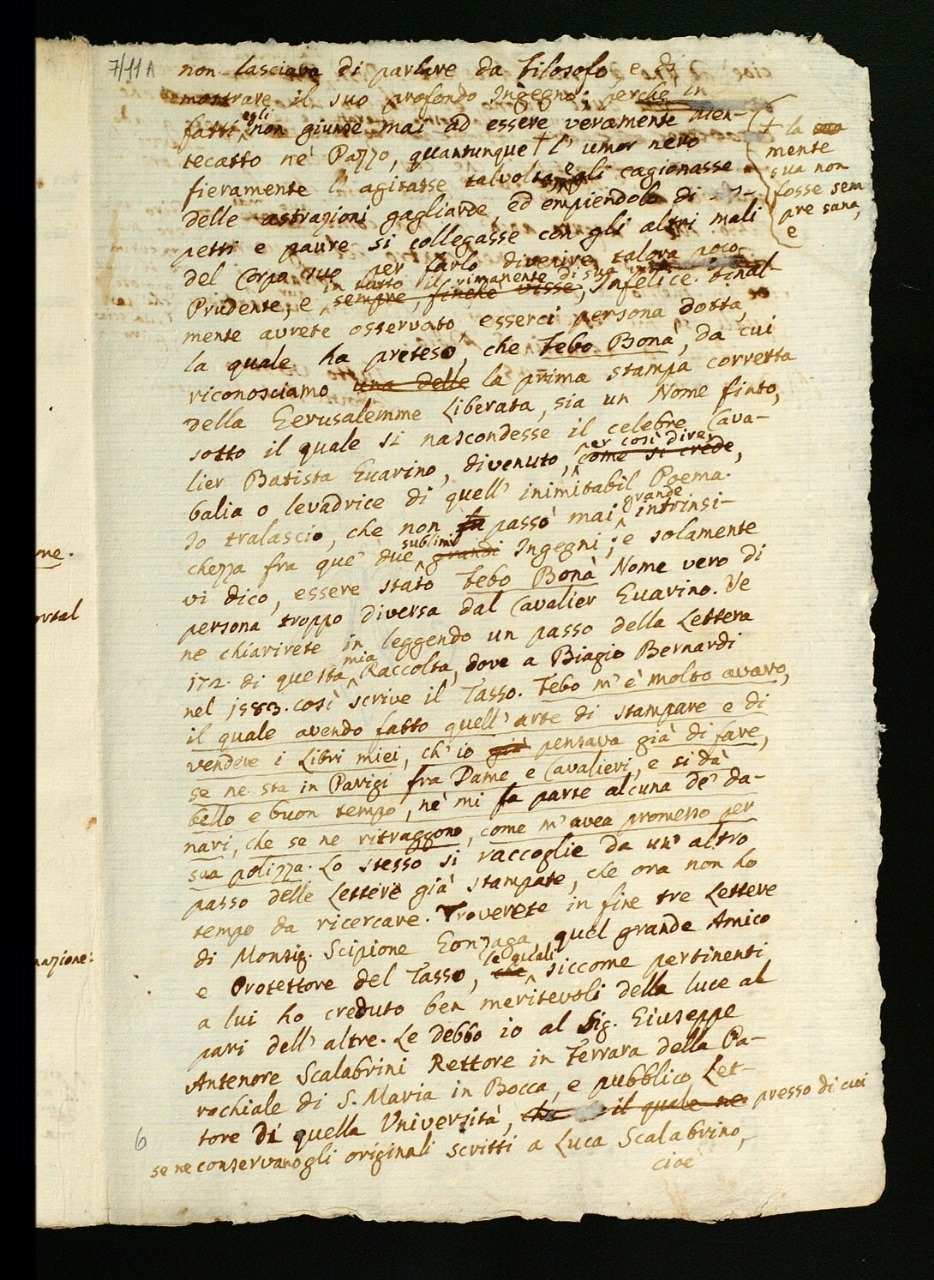 7/11A
non lasciava di parlare da Filosofo e di
mostrare il suo profondo Ingegno; perchè in
fatti egli non giunse mai ad essere veramente men-
tecatto nè Pazzo, quantunque † l' umor nero
fieramente l' agitasse talvolta, e gli cagionasse
delle astrazioni gagliarde, ed empiendolo di
petti e paure si collegasse con gli altri mali
del Corpo suo per farlo divenire talora poco
Prudente, e in tutto il rimanente di sua
sempre, finchè visse, Infelice. Final-
mente avrete osservato esserci persona dotta,
la quale ha preteso, che Febo Bonà, da cui
riconosciamo una delle la prima stampa corretta
della Gerusalemme Liberata, sia un Nome finto,
sotto il quale si nascondesse il celebre Cava-
lier Batista Guarino, divenuto, per così dire,
come si crede,
balia o levadrice di quell' inimitabil Poema.
Io tralascio, che non fu passò mai grande intrinsi-
chezza fra que' due sublimi grandi Ingegni; e solamente
vi dico, essere stato Febo Bonà Nome vero di
persona troppo diversa dal Cavalier Guarino. Ve
ne chiarirete in leggendo un passo della Lettera
172. di questa mia Raccolta, dove a Biagio Bernardi
nel 1583. così scrive il Tasso. Febo m'è molto avaro,
il quale avendo fatto quell' arte di stampare e di
vendere i Libri miei, ch' io già pensava già di fare,
se ne sta in Parigi fra Dame e Cavalieri, e si dà
bello e buon tempo, nè mi fa parte alcuna de' da-
nari, che se ne ritraggono, come m' avea promesso per
sua polizza. Lo stesso si raccoglie da un' altro
passo delle Lettere già stampate, che ora non ho
tempo da ricercare. Troverete in fine tre Lettere
di Monsig. Scipione Gonzaga, quel grande Amico
e Protettore del Tasso, che le quali siccome pertinenti
a lui ho creduto ben meritevoli della luce al
pari dell' altre. Le debbo io al Sig. Giuseppe
Antenore Scalabrini Rettore in Ferrara della Pa-
rochiale di S. Maria in Bocca, e pubblico Let-
tore di quella Università, il quale ne presso di cui
se ne conservano gli originali scritti a Luca Scalabrino,
cioè
† la
mente
sua non
fosse sem
pre sana,
e
6
ne.
ortal
nazione: